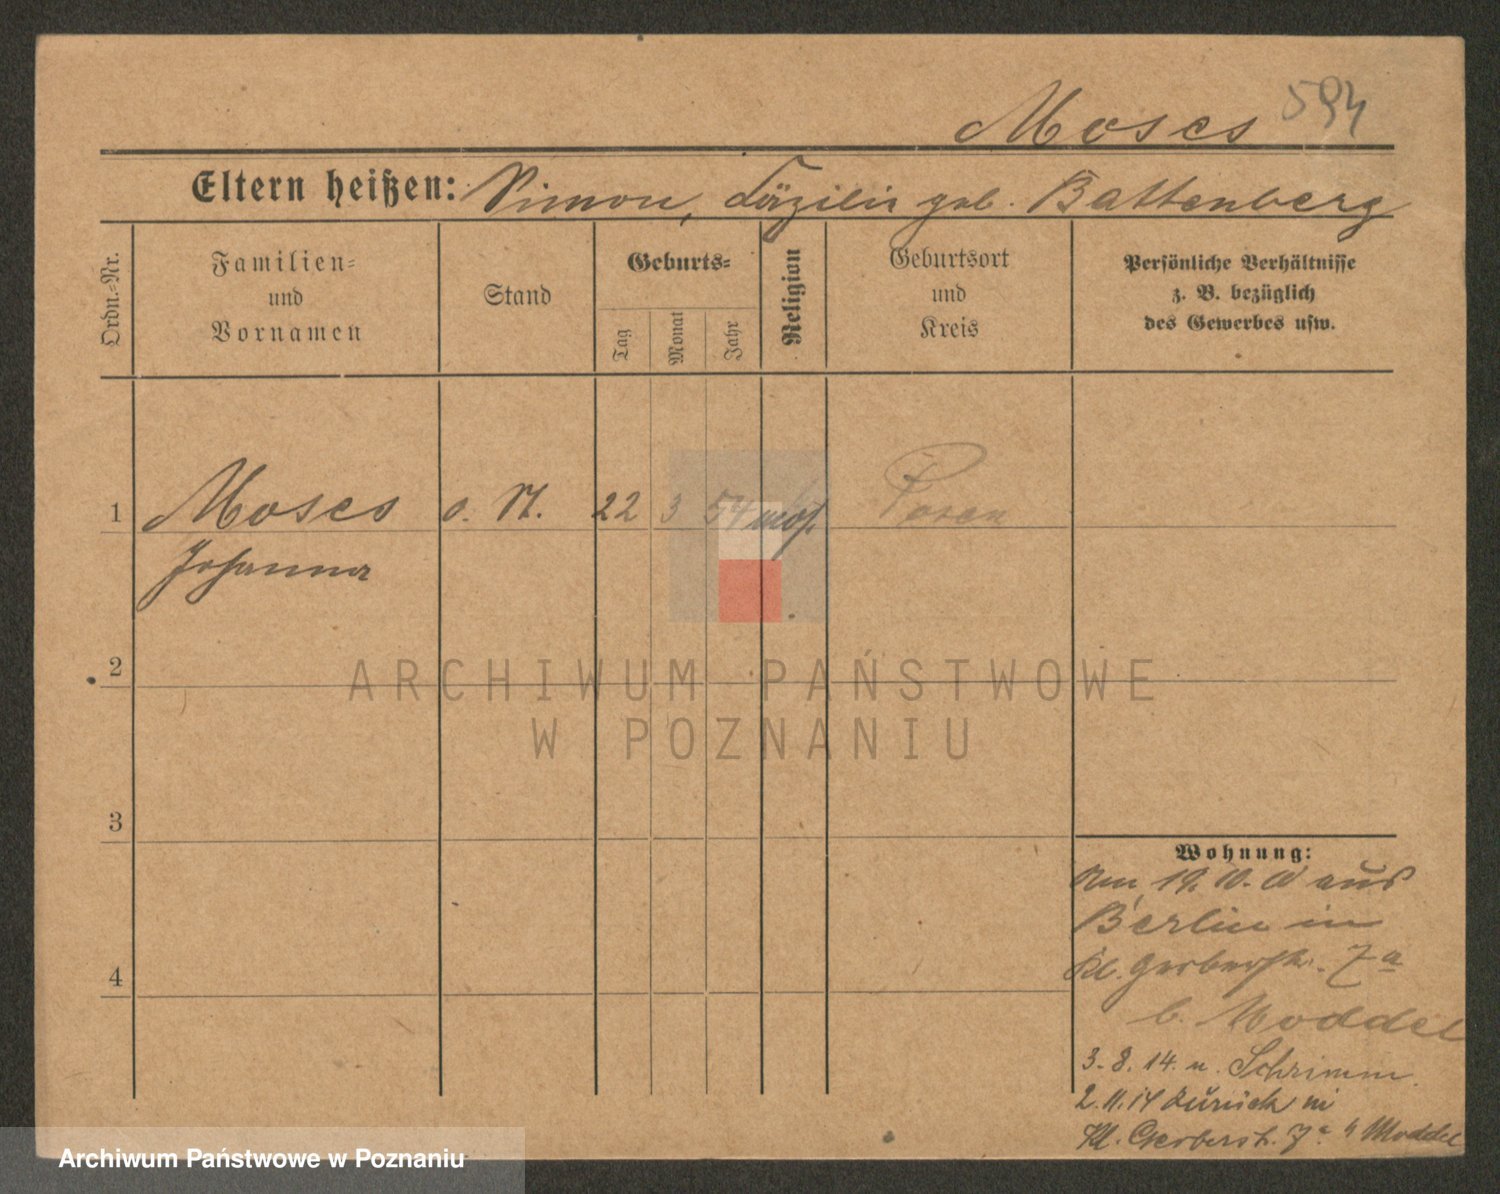 Moses 594
Eltern heißen: Simon, Cäzilie geb. Battenberg
Ordn.-Nr.
Familien-
und
Vornamen
Stand
Geburts-
Tag
Monat
Jahr
Religion
Geburtsort
und
Kreis
Persönliche Verhältnisse
z. B. bezüglich
des Gewerbes usw.
1 Moses o. St. 22 3 54 mos. Posen
Johanna
2
3
4
Wohnung:
Am 19. aus
Berlin in
Kl. Gerberstr. 7a
b. Moddel
3. 8. 14. n. Schrimm.
2. 11. 14 zurück in
Kl. Gerberstr. 7a Moddel
ARCHIWUM PAŃSTWOWE
W POZNANIU
Archiwum Państwowe w Poznaniu